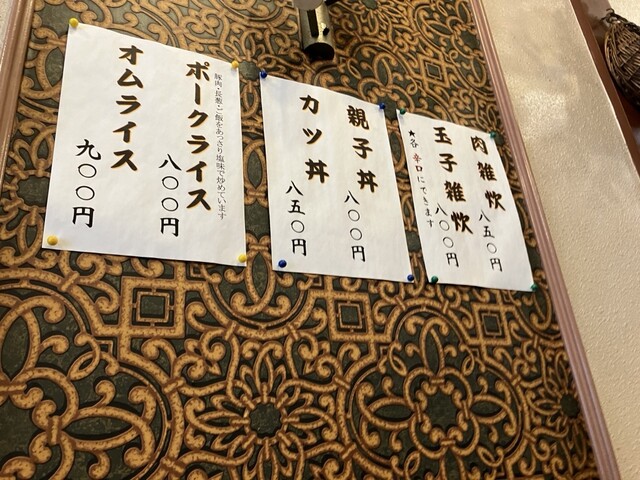 肉雑炊 八五〇円
玉子雑炊 八〇〇円
★各辛口にできます
親子丼 八〇〇円
カツ丼 八五〇円
豚肉・長葱・ご飯をあっさり塩味で炒めています
ポークライス 八〇〇円
オムライス 九〇〇円